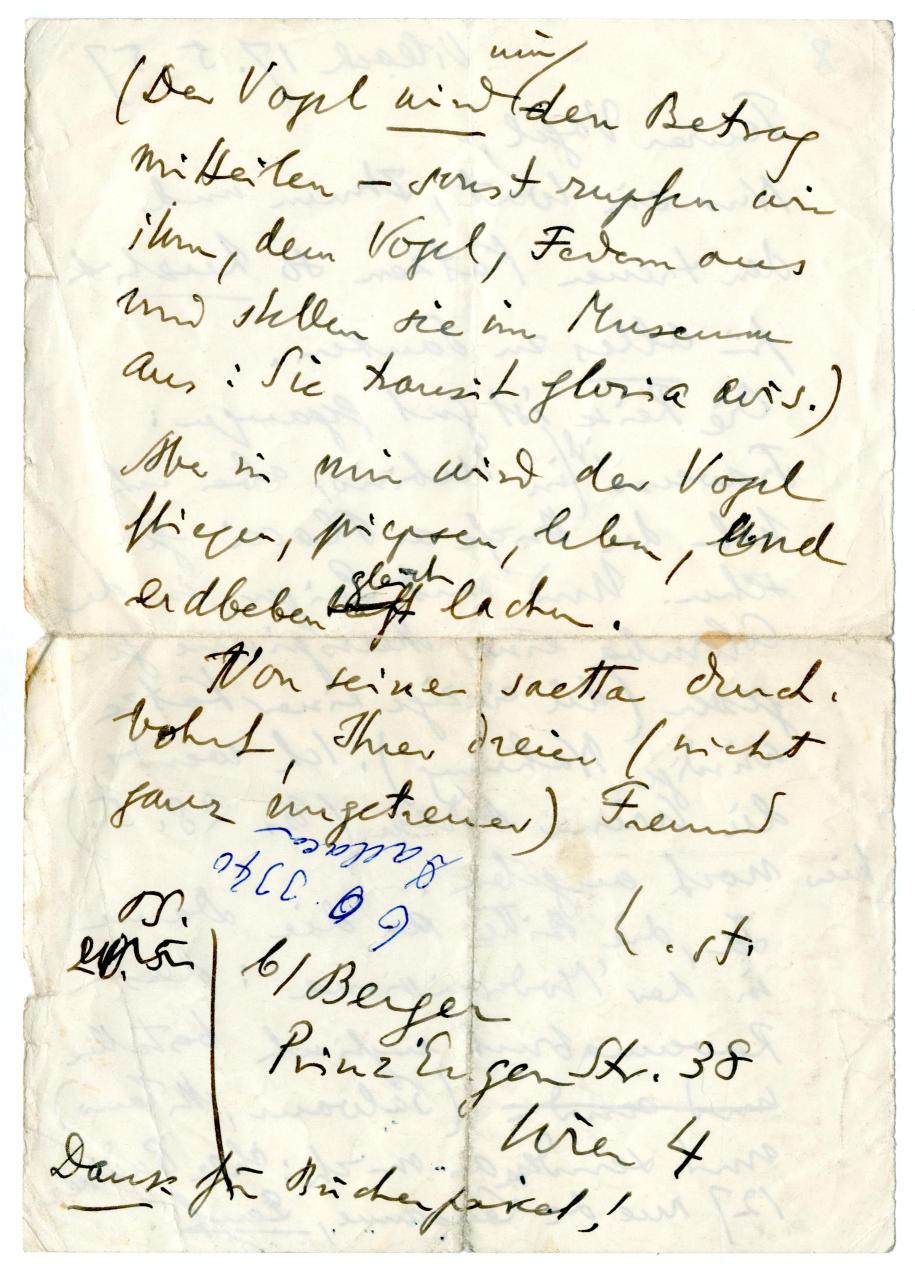 mir
(Der Vogel wird den Betrag
mitteilen – sonst rupfen wir
ihm, dem Vogel, Federn aus
und stellen sie im Museum
aus: Sic transit gloria avis.)
Aber in mir wird der Vogel
fliegen, piepsen, leben, und
gleich
erdbeben lachen.
Von seiner saetta durch-
bohrt, Ihrer dreier (nicht
ganz ungetreuer) Freund
L. st.
b/ Berger
Prinz Eugen Str. 38
Wien 4
Dank für Bücherpaket!